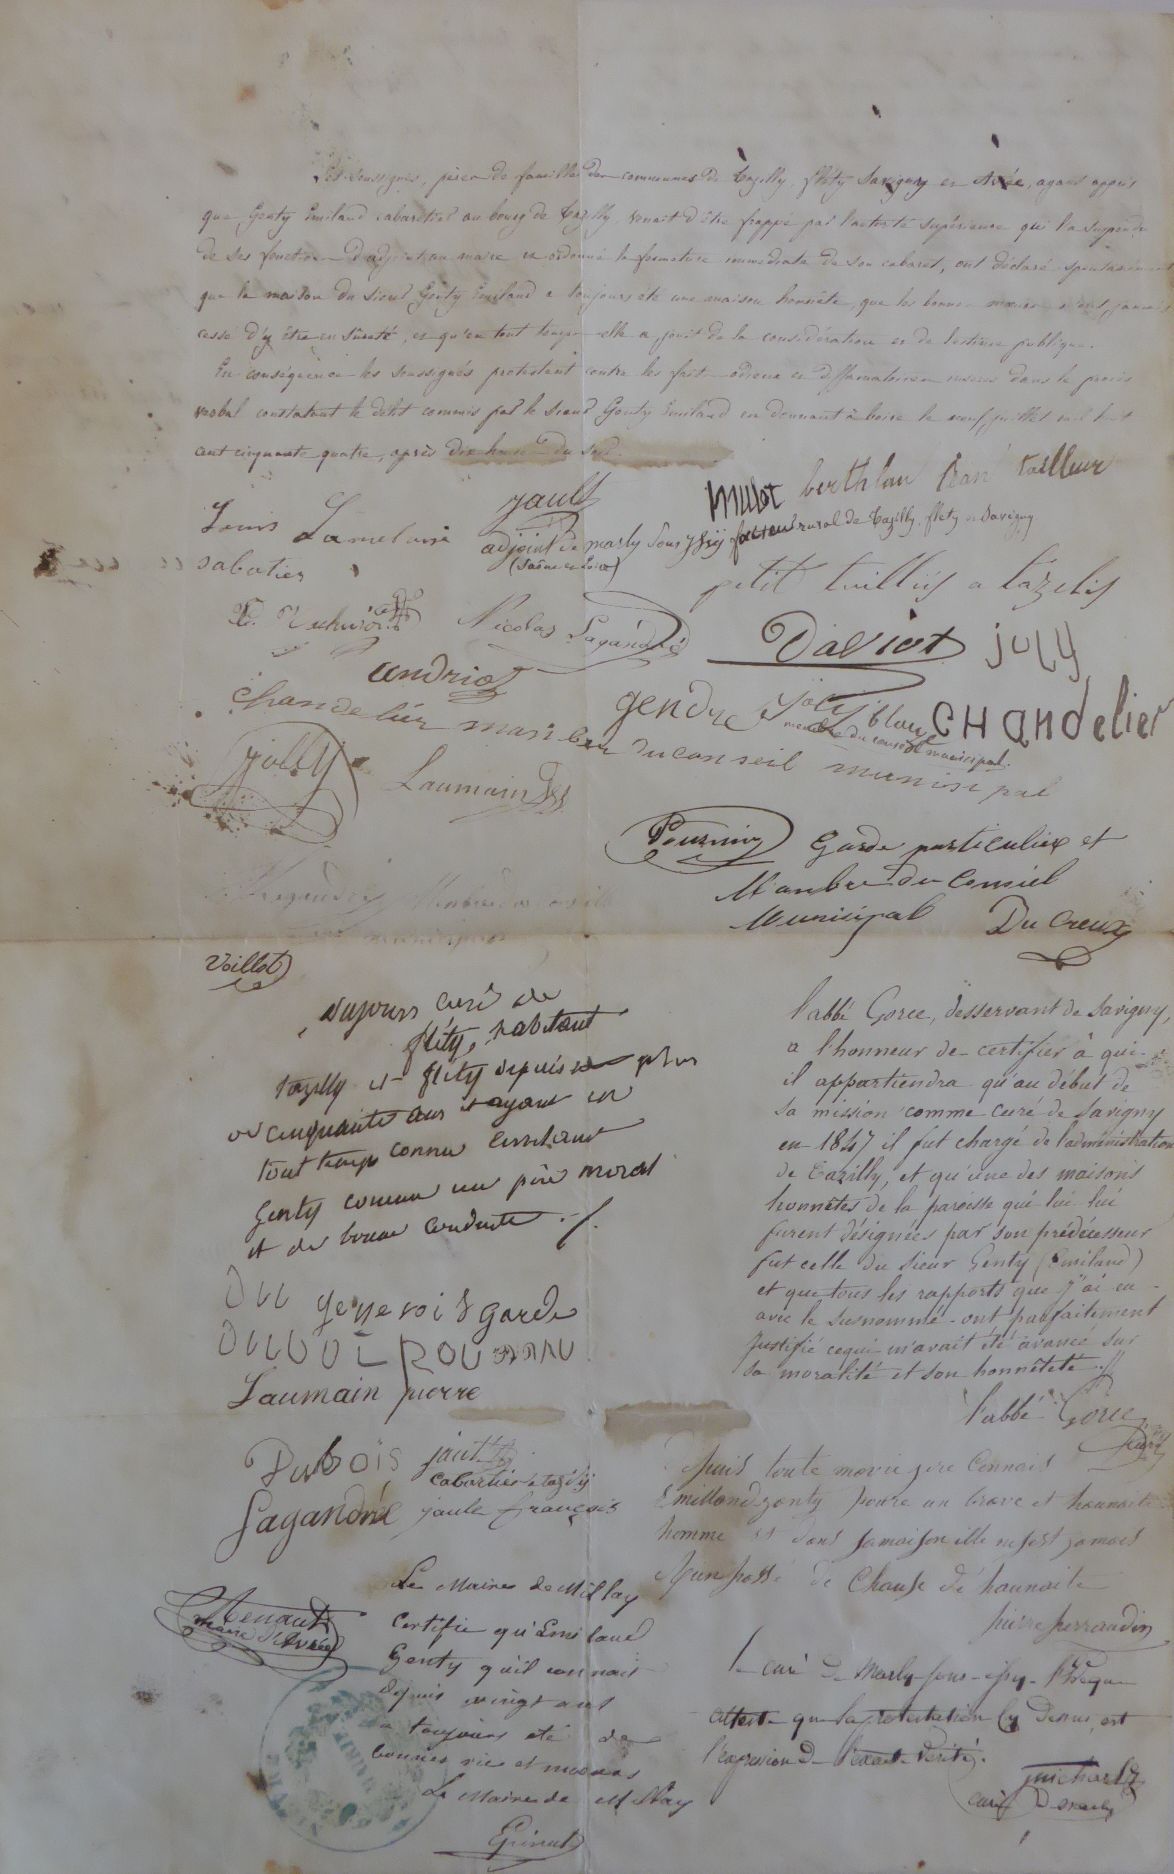 Les soussignés, pères de familles des communes de Tazilly, fléty Savigny et Avrée, ayant appris
que Genty Emiland cabaretier au bourg de Tazilly, venait d'être frappé par l'autorité supérieure qui l'a suspendu
de ses fonctions d'adjoint au maire et ordonné la fermeture immédiate de son cabaret, ont déclaré spontanément
que la maison du sieur Genty Emiland a toujours été une maison honnête, que les bonnes mœurs n'ont jamais
cessé d'y être en sûreté, et qu'en tout temps elle a joui de la considération et de l'estime publique.
En conséquence les soussignés protestent contre les faits odieux et diffamatoires insérés dans le procès
verbal constatant le délit commis par le sieur Genty Emiland en donnant à boire le neuf juillet mil huit
cent cinquante quatre, après dix heures du soir.
mulot berthlau tailleur
Jault
Louis Lameloise
adjoint de marly sous yssy facteur rural de Tazilly, flety et Savigny
(Saône et Loire)
sabotier
petit tuillijs a tazelis
Nicolas Lagandré
Daviot joly
andriot
gendre joly blau CHAndelier
membre du conseil municipal.
Chandelier manbre du conseil munisipal
jolly
Laumain
Garde particulier et
Manbre du Consiel
Municipal Du Creux
Voillot
Dujours curé de
fléty, habitant
tazilly et fléty depuis plus
de cinquante ans et ayant en
tout temps connu Emiland
Genty comme un père moral
et de bonne conduite ./.
l'abbé Gorce, desservant de Savigny,
a l'honneur de certifier à qui
il appartiendra qu'au début de
sa mission comme curé de Savigny
en 1847 il fut chargé de l'administration
de Tazilly, et qu'une des maisons
honnêtes de la paroisse qui lui
furent désignées par son prédécesseur
fut celle du sieur Genty (Emiland)
et que tous les rapports que j'ai eu
avec le susnommé ont parfaitement
justifié ce qui m'avait été avancé sur
sa moralité et son honnêteté ./.
l'abbé Gorce
genevois garde
Laumain pierre
Dubois jault
cabartier a tazilly
Lagandré jault françois
puis toute mavie jere Connais
Emilland genty poure un brave et hounaite
homme et dans samaison ille nesest jamais
Rien passé de Chause dé haunaite
pierre perraudin
Renault
maire d'Avrée
Le Maire de Millay
Certifie qu'Emiland
Genty qu'il connait
depuis vingt ans
a toujours été de
bonnes vie et mœurs
Le Maire de Millay
Epinat
le curé de Marly-sous-issy
atteste que la protestation cy dessus, est
l'expression de l'exacte vérité.
curé De marly
MAIRIE